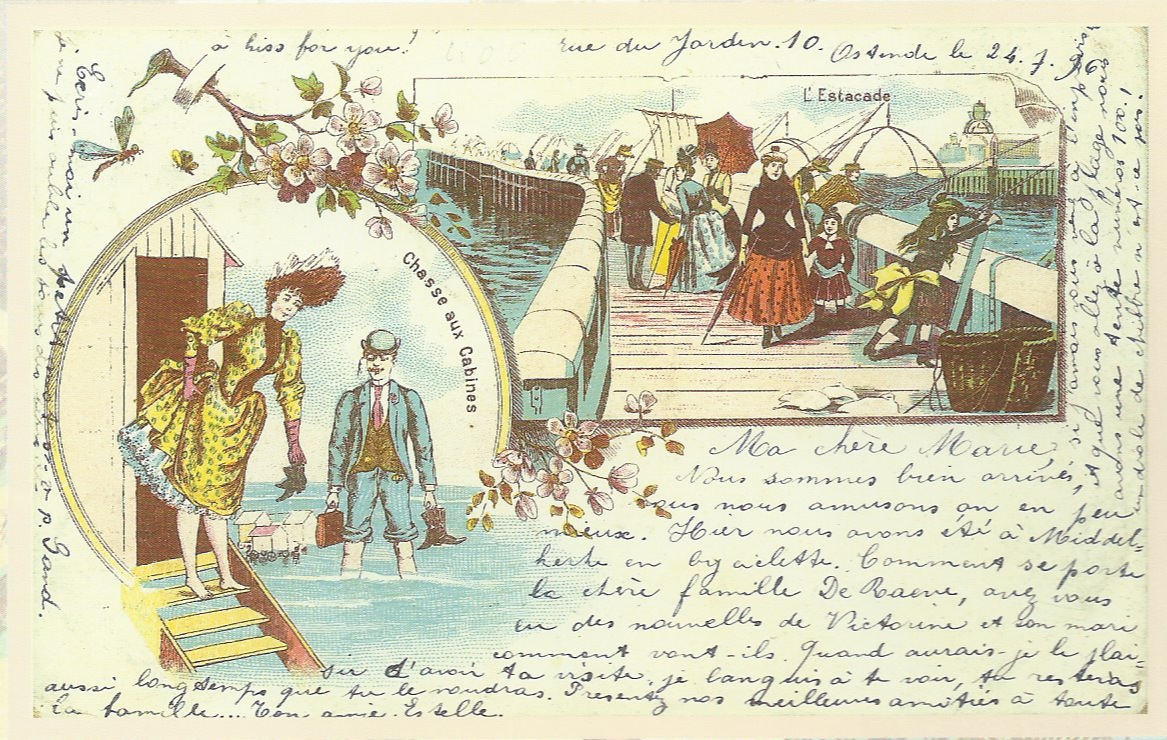 a kiss for you!
rue du Jardin. 10.
Ostende le 24. 7. 96
L'Estacade
Chasse aux Cabines
Ma chère Marie,
Nous sommes bien arrivés,
nous nous amusons on en peu
mieux. Hier nous avons été à Middel-
kerke en bycyclette. Comment se porte
la chère famille De Raeve, avez vous
eu des nouvelles de Victorine et son mari
comment vont-ils. Quand aurais-je le plai-
sir d'avoir ta visite, je languis à te voir, tu resteras
aussi longtemps que tu le voudras. Présentez nos meilleures amitiés à toute
la famille.... Ton amie. Estelle.
si jamais vous venez à
et que vous allez à la plage nous
avons une tente numéros 100.,
Ecris-moi un petit
Gand.